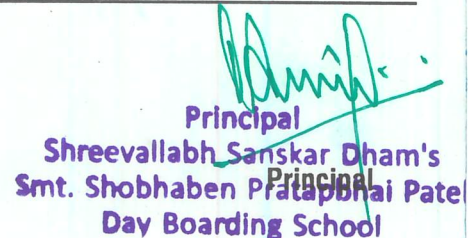 Principal
Shreevallabh Sanskar Dham's
Smt. Shobhaben Pratapbhai Patel
Principal
Day Boarding School